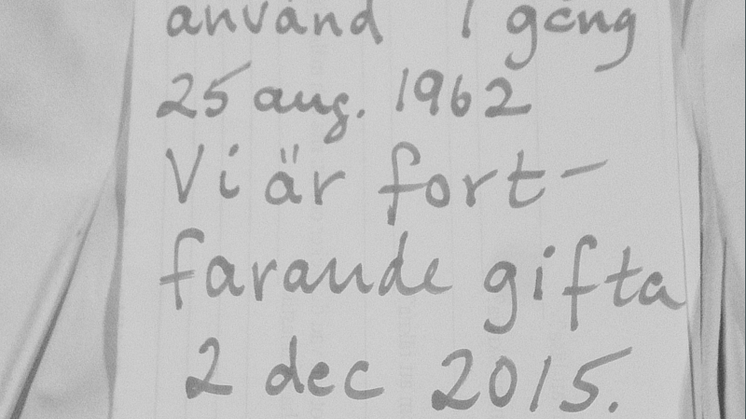 använd 1 gång
25 aug. 1962
Vi är fort-
farande gifta
2 dec 2015.